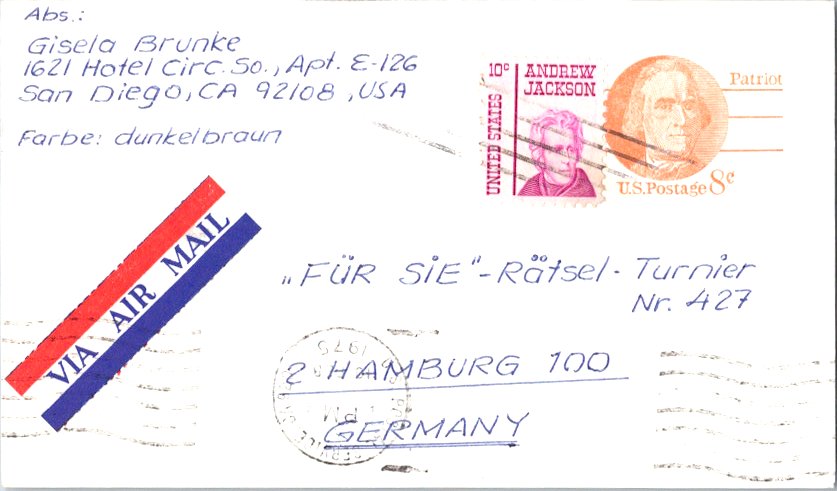 Abs.:
Gisela Brunke
1621 Hotel Circ. So., Apt. E-126
San Diego, CA 92108, USA
Farbe: dunkelbraun
10c ANDREW JACKSON
UNITED STATES
Patriot
U.S. Postage 8c
VIA AIR MAIL
„FÜR SIE"-Rätsel-Turnier
Nr. 427
2 HAMBURG 100
GERMANY
1975
PM